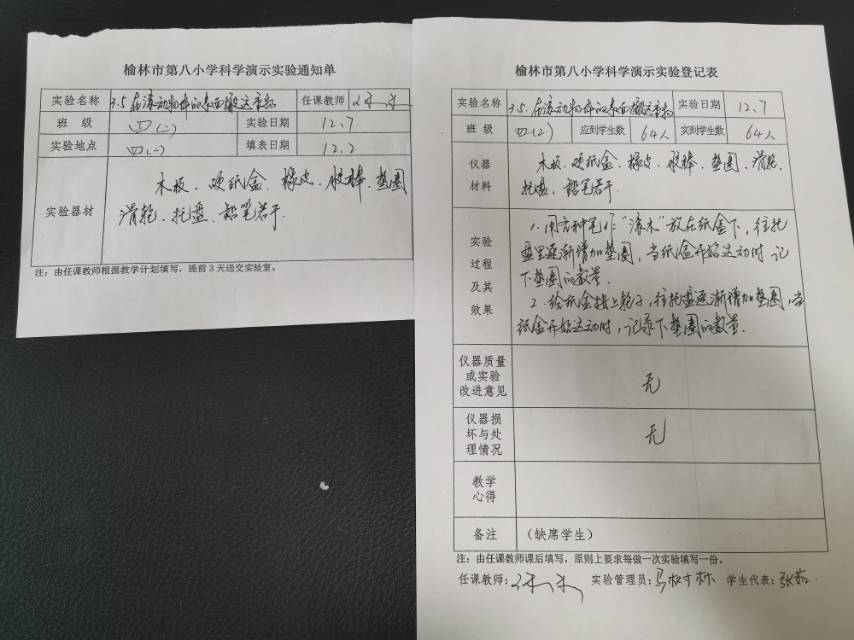 榆林市第八小学科学演示实验通知单
实验名称 3.5在滚动物体的表面搬运重物 任课教师
班 级 四(二) 实验日期 12.7
实验地点 四(二) 填表日期 12.2
实验器材
木板、硬纸盒、橡皮、胶棒、垫圈
滑轮、托盘、铅笔若干.
注:由任课教师根据教学计划填写,提前3天送交实验室。
榆林市第八小学科学演示实验登记表
实验名称 3.5.在滚动物体的表面搬运重物 实验日期 12.7
班 级 四(2) 应到学生数 64人 实到学生数 64人
仪器
材料
木板、硬纸盒、橡皮、胶棒、垫圈、滑轮、
托盘、铅笔若干.
实验
过程
及其
效果
1.用各种笔作“滚木”放在纸盒下,往托
盘里逐渐增加垫圈,当纸盒开始运动时记
下垫圈的数量.
2.给纸盒接上轮子,往托盘逐渐增加垫圈,当
纸盒开始运动时,记录下垫圈的数量.
仪器质量
或实验
改进意见
无
仪器损
坏与处
理情况
无
教学
心得
备注 (缺席学生)
注:由任课教师课后填写,原则上要求每做一次实验填写一份。
任课教师: 实验管理员:马树林 学生代表:张茹